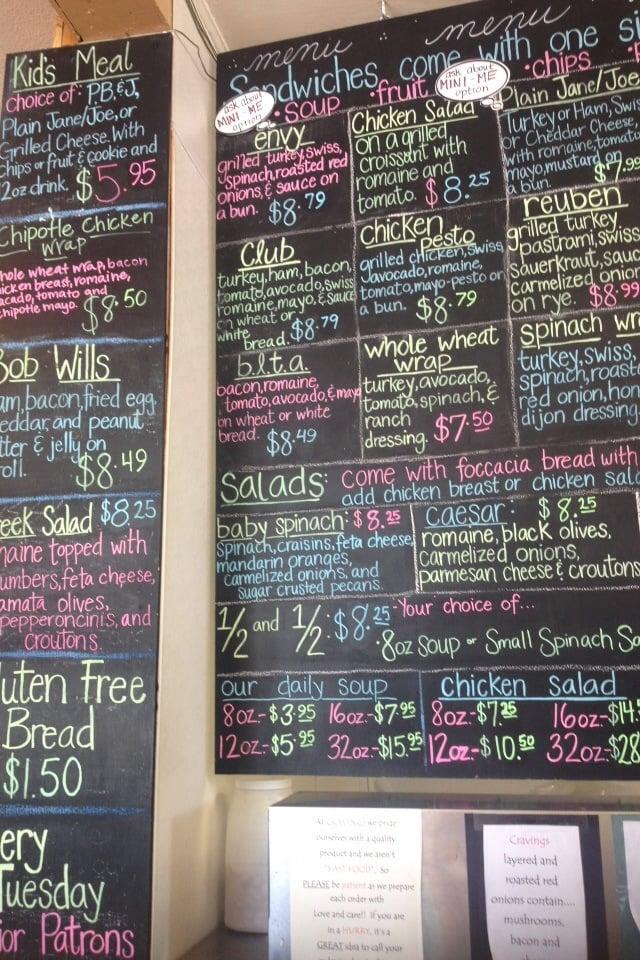 Kid's Meal
choice of: PB&J,
Plain Jane/Joe, or
Grilled Cheese. With
chips or fruit & cookie and
12oz drink. $5.95
Chipotle Chicken
Wrap
whole wheat wrap, bacon
chicken breast, romaine,
avocado, tomato and
chipotle mayo. $8.50
Bob Wills
ham, bacon, fried egg
cheddar, and peanut
butter & jelly on
roll. $8.49
Greek Salad $8.25
romaine topped with
cucumbers, feta cheese,
kalamata olives,
pepperoncinis, and
croutons.
Gluten Free
Bread
$1.50
Every
Tuesday
ior Patrons
menu menu
Sandwiches come with one si
• soup • fruit • chips
ask about
MINI-ME
option
ask about
MINI-ME
option
envy
grilled turkey, swiss,
spinach, roasted red
onions, & sauce on
a bun. $8.79
Chicken Salad
on a grilled
croissant with
romaine and
tomato. $8.25
Plain Jane/Joe
Turkey or Ham, Swi
or Cheddar Cheese,
with romaine, tomato,
mayo, mustard on
a bun $7.99
Club
turkey, ham, bacon,
tomato, avocado, swiss
romaine, mayo, & sauce
on wheat or
white
bread. $8.79
chicken
pesto
grilled chicken, swiss,
avocado, romaine,
tomato, mayo-pesto on
a bun. $8.79
reuben
grilled turkey
pastrami, swiss
sauerkraut, sauc
carmelized onion
on rye. $8.99
b.l.t.a.
bacon, romaine,
tomato, avocado, & mayo
on wheat or white
bread. $8.49
whole wheat
wrap
turkey, avocado,
tomato, spinach, &
ranch
dressing. $7.50
spinach wr
turkey, swiss,
spinach, roast
red onion, hon
dijon dressing
Salads: come with foccacia bread with
add chicken breast or chicken sala
baby spinach: $8.25
spinach, craisins, feta cheese,
mandarin oranges,
carmelized onions, and
sugar crusted pecans.
caesar: $8.25
romaine, black olives,
carmelized onions,
parmesan cheese & croutons
1/2 and 1/2: $8.25 Your choice of...
8oz Soup or Small Spinach Sa
our daily soup
8oz-$3.95 16oz-$7.95
12oz-$5.95 32oz-$15.95
chicken Salad
8oz-$7.25 16oz-$14.
12oz-$10.50 32oz-$28
we pride
ourselves with a quality
product and we aren't
"FAST FOOD". So
PLEASE be patient as we prepare
each order with
Love and care!! If you are
in a HURRY, it's a
GREAT idea to call your
Cravings
layered and
roasted red
onions contain....
mushrooms,
bacon and